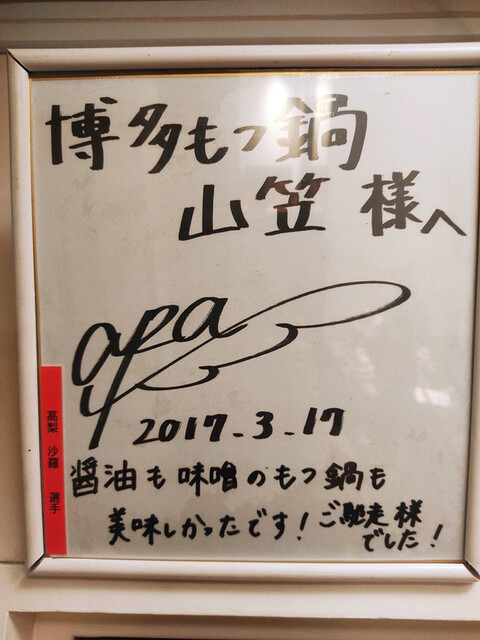 博多もつ鍋
山笠 様へ
2017.3.17
醤油も味噌のもつ鍋も
美味しかったです！ご馳走様
でした！
高梨 沙羅 選手